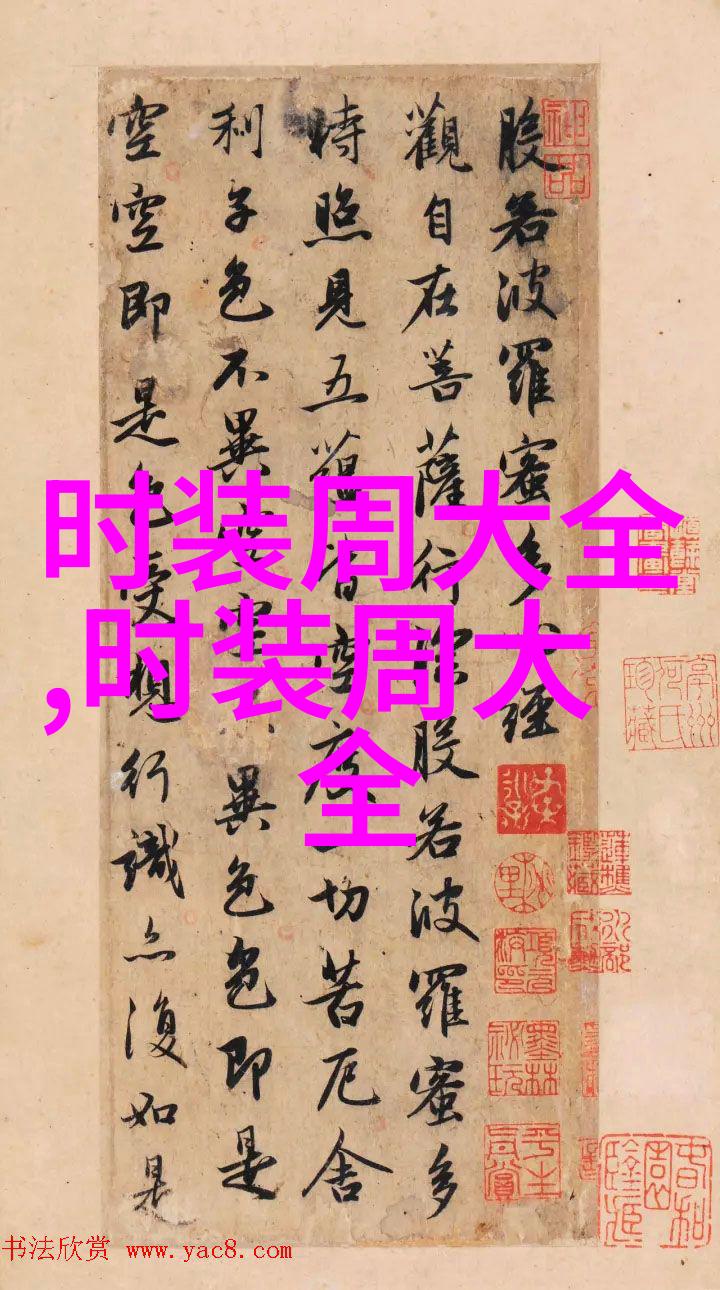 般若波羅蜜多心經
觀自在菩薩行深般若波羅蜜多
時照見五蘊皆空度一切苦厄舍
利子色不異空空不異色色即是
空空即是色受想行識亦復如是
时装周大全
,时装周大
全
书法欣赏 www.yac8.com